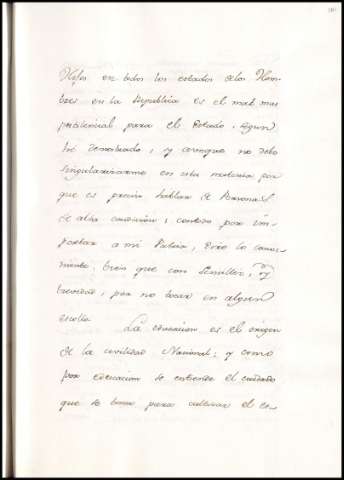 Hijos en todos los estados de los Hom-
bres en la Republica es el mal mas
pestilencial para el Estado, segun
he demostrado, y aunque no debo
singularizarme en esta materia por
que es preciso hablar de Personas
de alta condicion; contodo por im-
portar a mi Patria, dire lo conve-
niente; bien que con sencillez, y
brevedad, por no tocar en algun
escollo. La educacion es el origen
de la civilidad Nacional; y como
por educacion se entiende el cuidado
que se toma para cultivar el es-